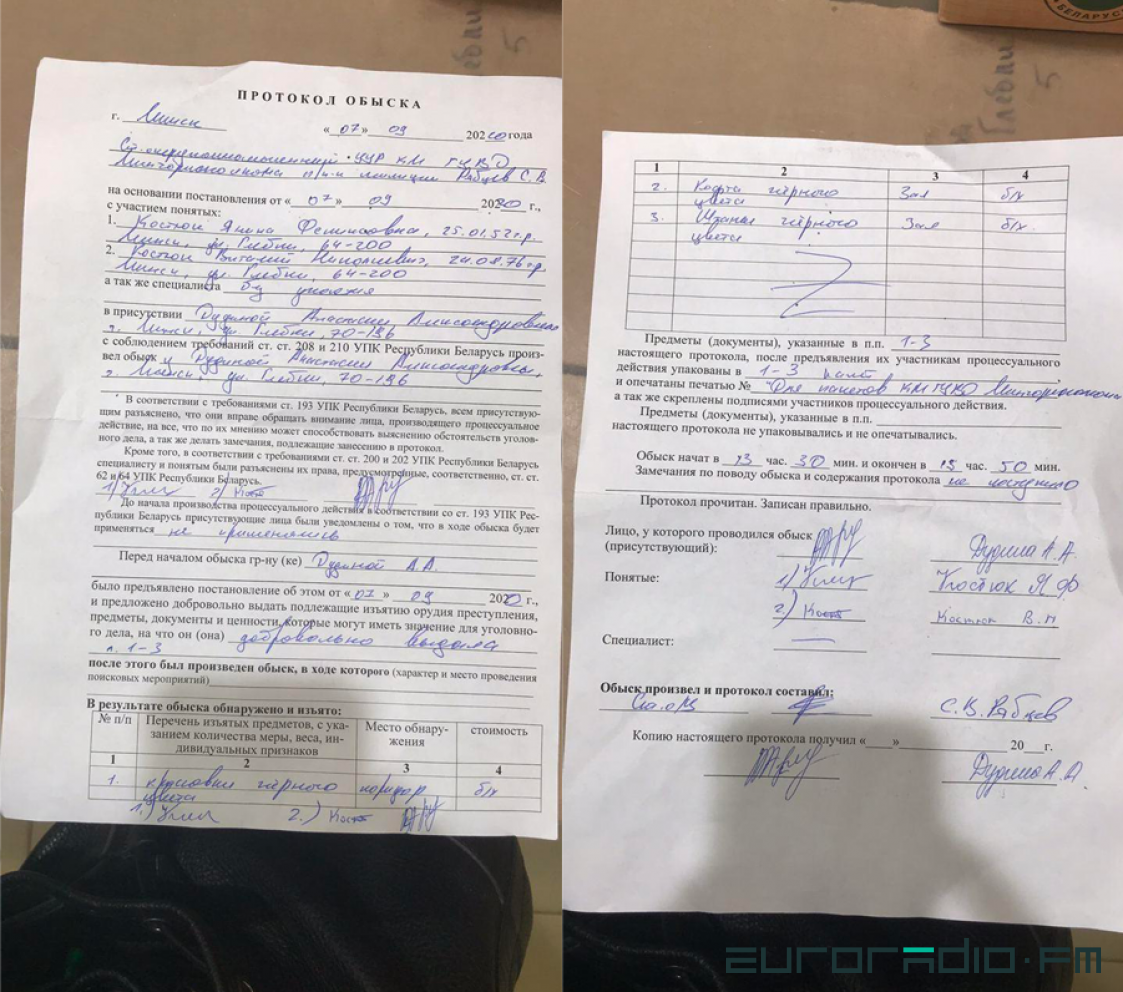 ПРОТОКОЛ ОБЫСКА
г. Минск
« 07 » 09 2020 года
Ст. оперуполномоченный УУР КМ ГУВД
Мингорисполкома п/п-к милиции Рябцев С. В.
на основании постановления от « 07 » 09 2020 г.,
с участием понятых:
1. Костюк Янина Феликсовна, 25.01.52 г.р.
Минск, ул. Глебки, 64-200
2. Костюк Виталий Николаевич, 24.08.76 г.р.
Минск, ул. Глебки, 64-200
а так же специалиста без участия
в присутствии Дудиной Анастасии Александровны
г. Минск, ул. Глебки, 70-196
с соблюдением требований ст. ст. 208 и 210 УПК Республики Беларусь произ-
вел обыск у Дудиной Анастасии Александровны,
г. Минск, ул. Глебки, 70-196
В соответствии с требованиями ст. 193 УПК Республики Беларусь, всем присутствую-
щим разъяснено, что они вправе обращать внимание лица, производящего процессуальное
действие, на все, что по их мнению может способствовать выяснению обстоятельств уголов-
ного дела, а так же делать замечания, подлежащие занесению в протокол.
Кроме того, в соответствии с требованиями ст. ст. 200 и 202 УПК Республики Беларусь
специалисту и понятым были разъяснены их права, предусмотренные, соответственно, ст. ст.
62 и 64 УПК Республики Беларусь.
1) 2) Кост
До начала производства процессуального действия в соответствии со ст. 193 УПК Рес-
публики Беларусь присутствующие лица были уведомлены о том, что в ходе обыска будет
применяться не применялись
Перед началом обыска гр-ну (ке) Дудиной А.А.
было предъявлено постановление об этом от « 07 » 09 2020 г.,
и предложено добровольно выдать подлежащие изъятию орудия преступления,
предметы, документы и ценности, которые могут иметь значение для уголовно-
го дела, на что он (она) добровольно выдала
п. 1-3
после этого был произведен обыск, в ходе которого (характер и место проведения
поисковых мероприятий)
В результате обыска обнаружено и изъято:
№ п/п Перечень изъятых предметов, с ука-занием количества меры, веса, ин-дивидуальных признаков Место обнару-жения стоимость
1 2 3 4
1. кроссовки чёрного цвета коридор б/н
1.) 2.) Кост
1 2 3 4
2. Кофта чёрного цвета Зал б/н
3. Штаны чёрного цвета Зал б/н
Предметы (документы), указанные в п.п. 1-3
настоящего протокола, после предъявления их участникам процессуального
действия упакованы в 1-3 пакет
и опечатаны печатью № "Для пакетов КМ ГУВД Мингорисполкома
а так же скреплены подписями участников процессуального действия.
Предметы (документы), указанные в п.п.
настоящего протокола не упаковывались и не опечатывались.
Обыск начат в 13 час. 30 мин. и окончен в 13 час. 50 мин.
Замечания по поводу обыска и содержания протокола не поступило
Протокол прочитан. Записан правильно.
Лицо, у которого проводился обыск
(присутствующий): Дудина А.А.
Понятые: 1) Костюк Я.Ф
2) Кост Костюк В.Н
Специалист:
Обыск произвел и протокол составил:
С.В. Рябцев
Копию настоящего протокола получил « » 20 г.
Дудина А.А.
БЕЛАРУС
Глебки
5
EURORADIO.FM